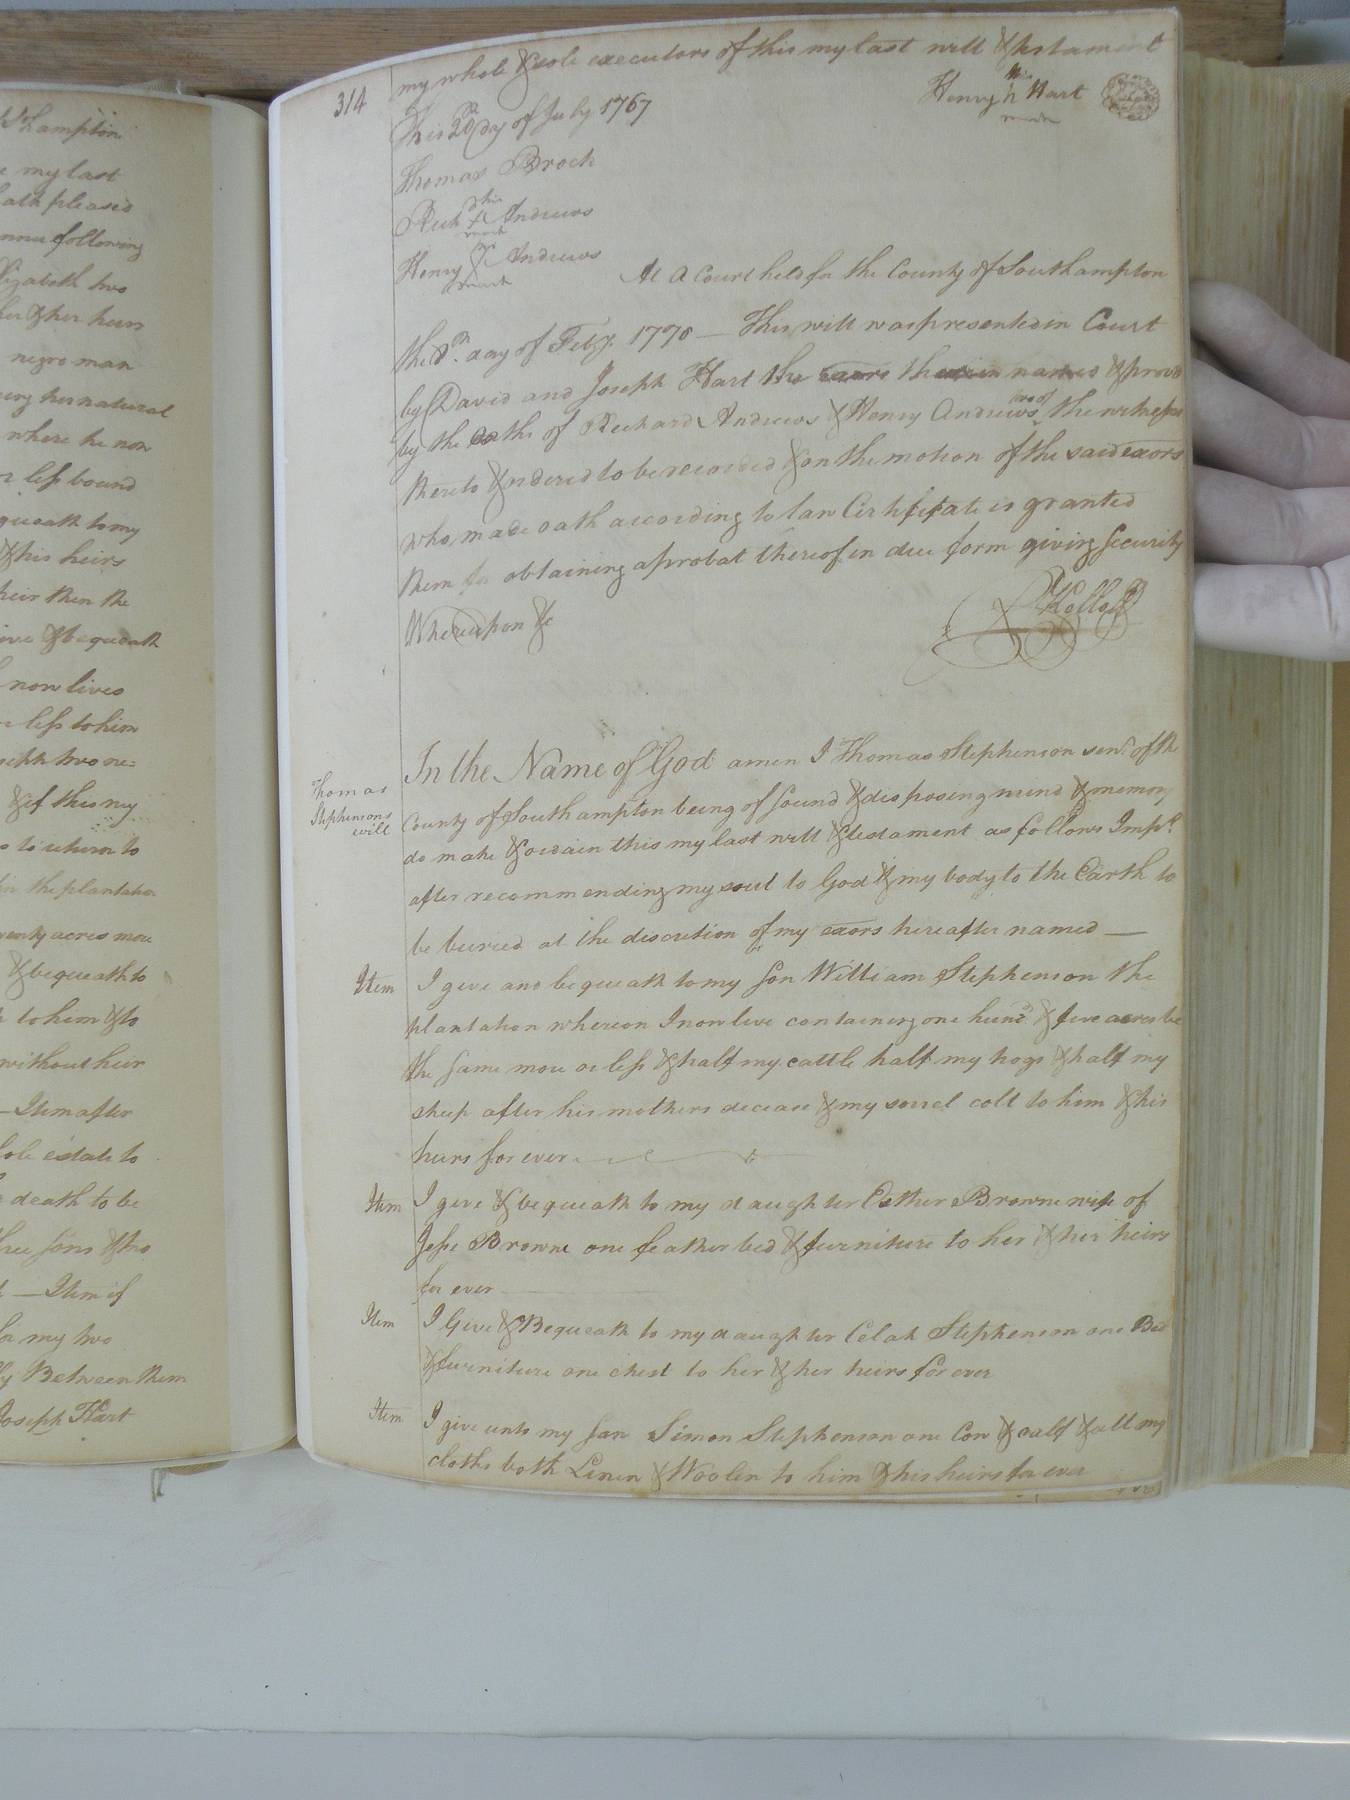 Shampton
my last
ath pleased
following
Elizabeth two
her & her heirs
negro man
ring her natural
where he now
less bound
queath to my
& his heirs
heir then the
give & bequeath
now lives
less to him
two ne=
& if this my
to return to
in the plantation
acres more
& bequeath to
to him & to
without heir
Item after
sole estate to
death to be
three sons & two
Item if
for my two
Between them
Joseph Hart
314
my whole & sole executors of this my last will & testament
This 20th day of July 1767
Henry his h mark Hart
Thomas Brock
Rich his mark Andrews
Henry mark Andrews
At a Court held for the County of Southampton
the 8th day of Feby. 1770 — This will was presented in Court
by David and Joseph Hart the exors therein named & proved
by the oaths of Richard Andrews & Henry Andrews two of the witnesses
thereto & ordered to be recorded & on the motion of the said exors
who made oath according to law Certificate is granted
them for obtaining a probat thereof in due form giving security
Whereupon &c
R Kello
Thomas
Stephensons
will
In the Name of God amen I Thomas Stephenson senr of the
County of Southampton being of sound & disposing mind & memory
do make & ordain this my last will & testament as follows Imps
after recommending my soul to God & my body to the Earth to
be buried at the discretion of my exors hereafter named —
Item I give and bequeath to my son William Stephenson the
plantation whereon I now live containing one hund & five acres be
the same more or less & half my cattle half my hogs & half my
sheep after his mothers decease & my sorrel colt to him & his
heirs for ever
Item I give & bequeath to my daughter Esther Browne wife of
Jesse Browne one feather bed & furniture to her & her heirs
for ever
Item I Give & Bequeath to my daughter Celah Stephenson one Bed
& furniture one chest to her & her heirs for ever
Item I give unto my son Simon Stephenson one Cow & calf & all my
cloths both Linen & Woolen to him & his heirs for ever